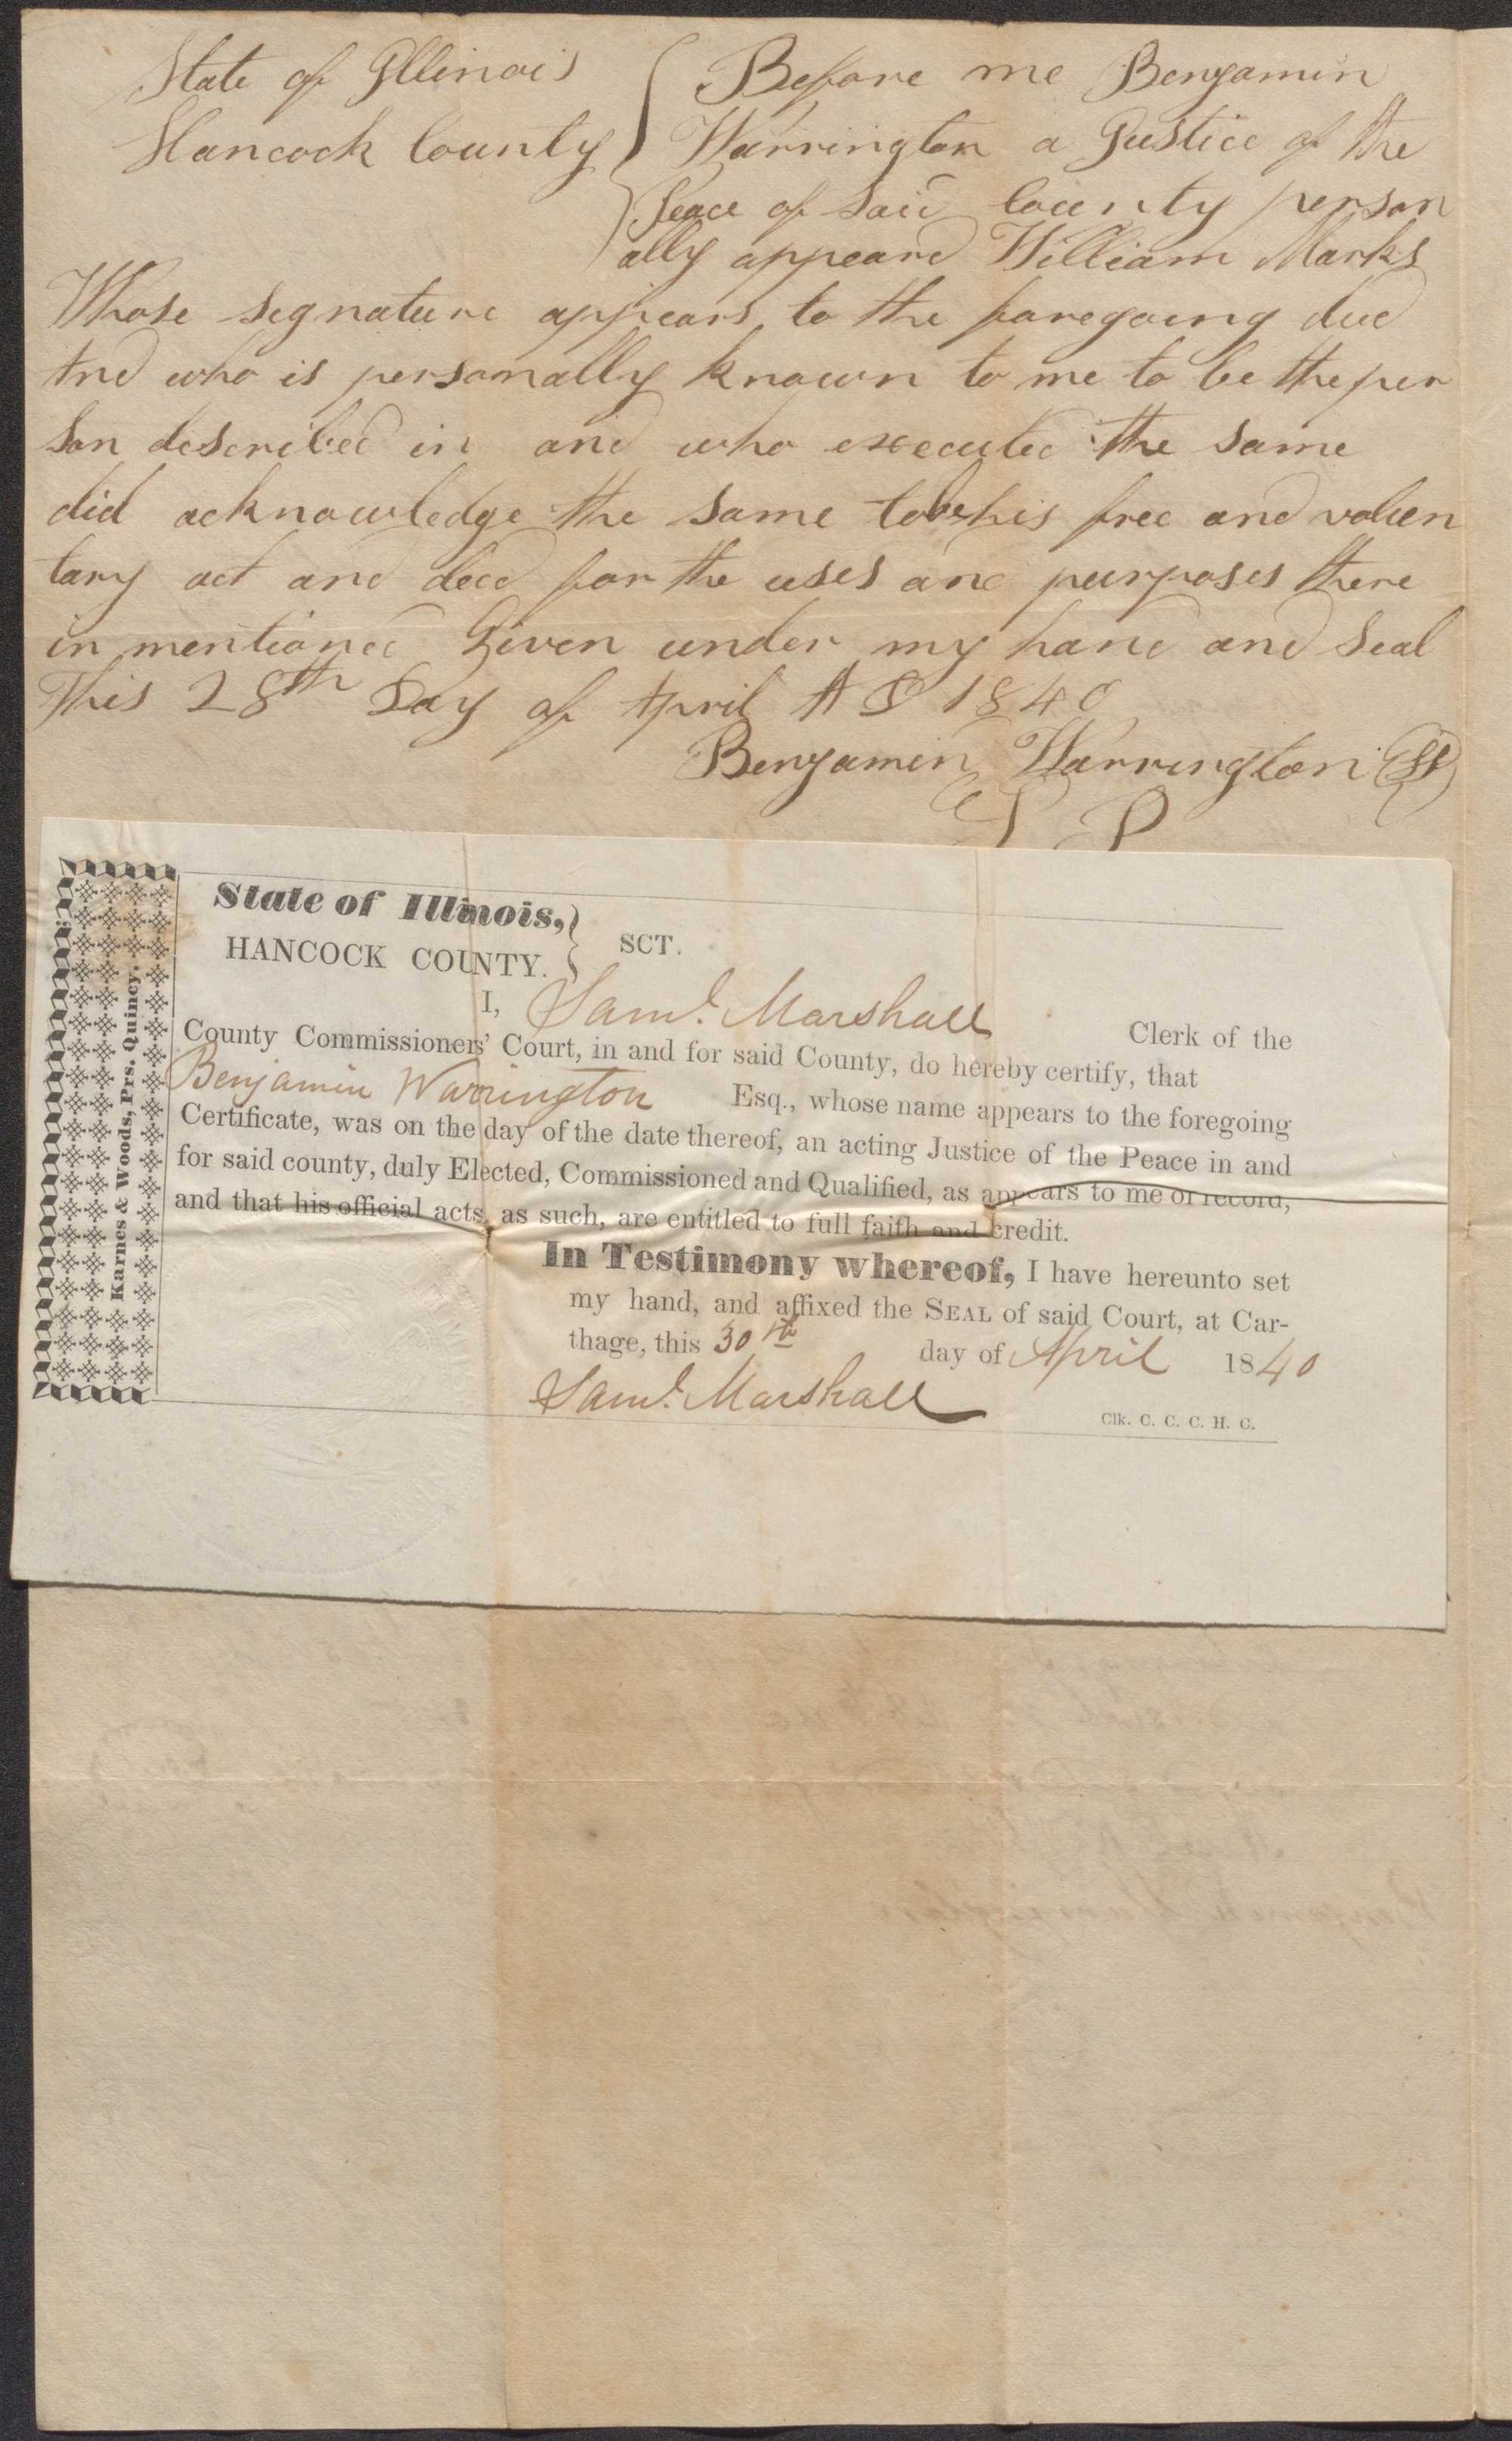 State of Illinois } Before me Benjamin
Hancock County } Warrington a Justice of the
Peace of Said County person
ally appeard William Marks
Whose segnature appears to the foregoing deed
And who is personally known to me to be the per
son described in and who executed the same
did acknowledge the same to be his free and volun
tary act and deed for the uses and purposes there
in mentioned Given under my hand and Seal
This 28th Day of April A D 1840
Benjamin Warrington
J P
State of Illinois, }
HANCOCK COUNTY. } SCT.
I, Saml. Marshall Clerk of the
County Commissioners' Court, in and for said County, do hereby certify, that
Benjamin Warrington Esq., whose name appears to the foregoing
Certificate, was on the day of the date thereof, an acting Justice of the Peace in and
for said county, duly Elected, Commissioned and Qualified, as appears to me of record,
and that his official acts, as such, are entitled to full faith and credit.
In Testimony whereof, I have hereunto set
my hand, and affixed the SEAL of said Court, at Car-
thage, this 30th day of April 1840
Saml. Marshall Clk. C. C. C. H. C.
Karnes & Woods, Prs. Quincy.